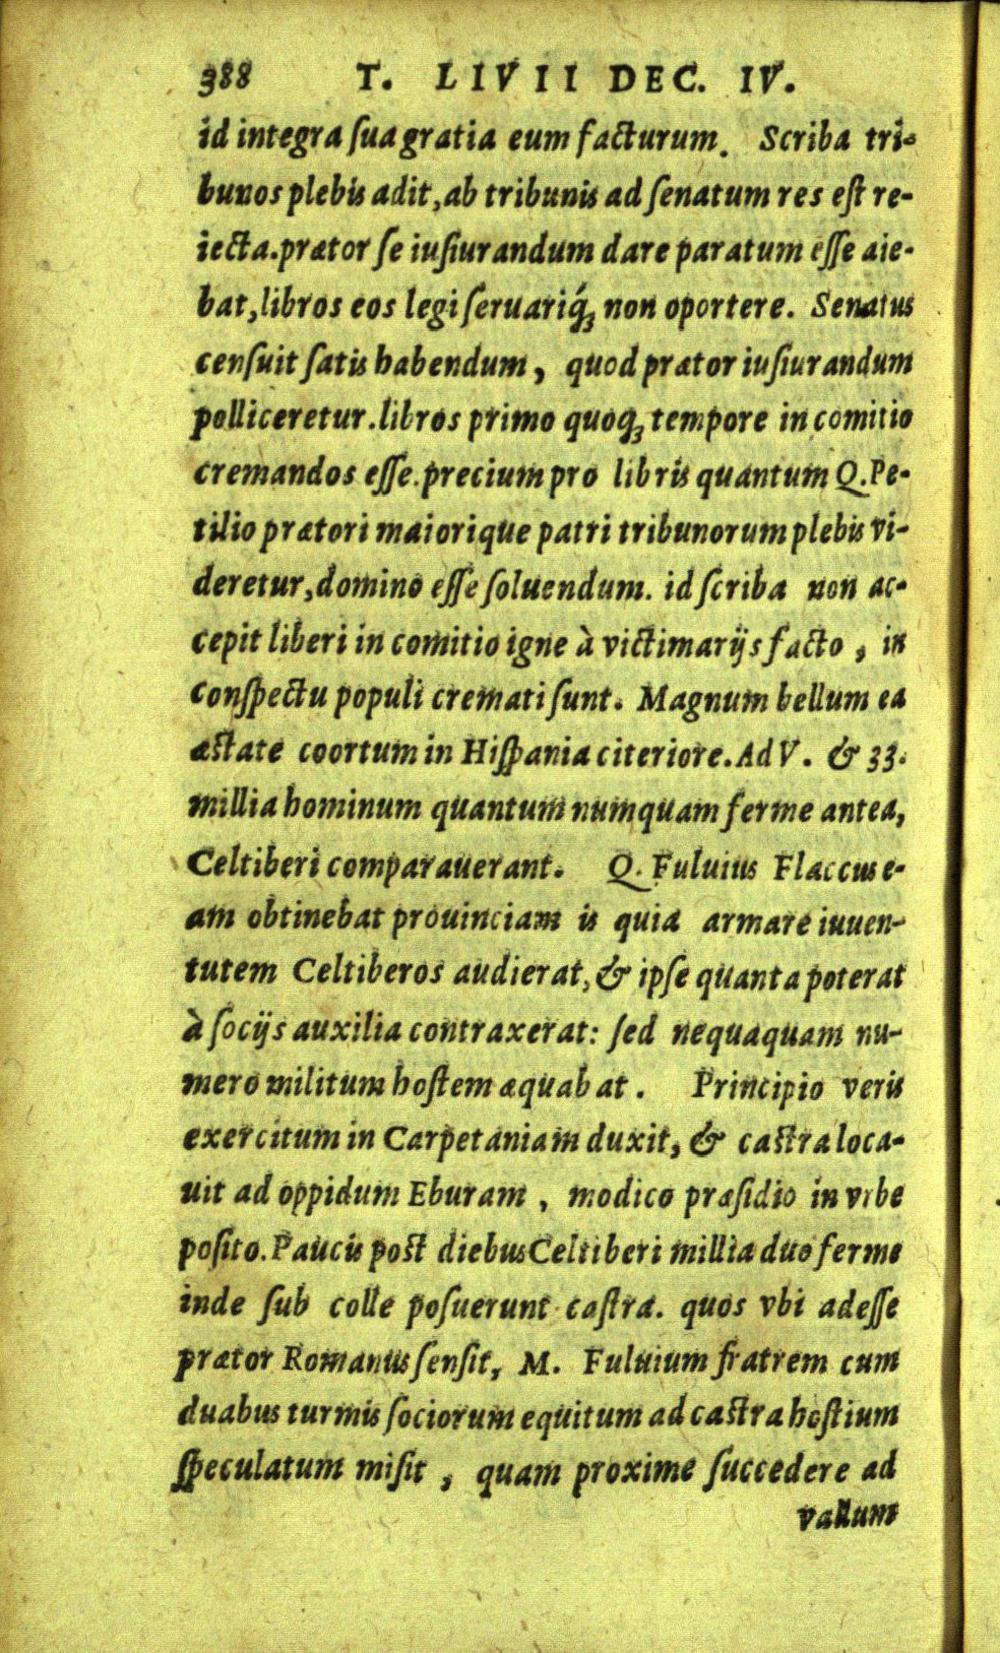 388 T. LIVII DEC. IV.
id integra ſua gratia eum facturum. Scriba tri-
bunos plebis adit, ab tribunis ad ſenatum res eſt re-
iecta. prætor ſe iuſiurandum dare paratum eſſe aie-
bat, libros eos legi ſeruariq́ꝫ non oportere. Senatus
cenſuit ſatis habendum, quod prætor iuſiurandum
polliceretur. libros primo quoqꝫ tempore in comitio
cremandos eſſe. precium pro libris quantum Q. Pe-
tilio prætori maiorique patri tribunorum plebis vi-
deretur, domino eſſe ſoluendum. id ſcriba non ac-
cepit liberi in comitio igne à victimarijs facto, in
conſpectu populi cremati ſunt. Magnum bellum ea
æſtate coortum in Hiſpania citeriore. Ad V. & 33.
millia hominum quantum numquam ferme antea,
Celtiberi comparauerant. Q. Fuluius Flaccus e-
am obtinebat prouinciam is quia armare iuuen-
tutem Celtiberos audierat, & ipſe quanta poterat
à ſocijs auxilia contraxerat: ſed nequaquam nu-
mero militum hoſtem æquabat. Principio veris
exercitum in Carpetaniam duxit, & caſtra loca-
uit ad oppidum Eburam, modico præſidio in vrbe
poſito. Paucis poſt diebus Celtiberi millia duo ferme
inde ſub colle poſuerunt caſtra. quos vbi adeſſe
prætor Romanus ſenſit, M. Fuluium fratrem cum
duabus turmis ſociorum equitum ad caſtra hoſtium
ſpeculatum miſit, quam proxime ſuccedere ad
vallum